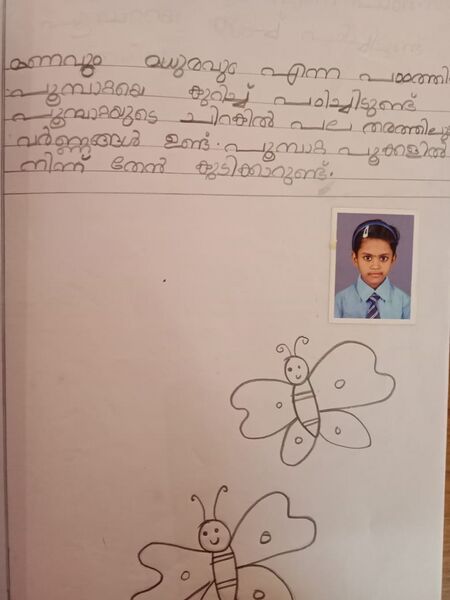 മണവും മധുരവും എന്ന പാഠത്തി
പൂമ്പാറ്റയെ കുറിച്ച് പഠിച്ചിട്ടുണ്ട്
പൂമ്പാറ്റയുടെ ചിറകിൽ പല തരത്തിലു
വർണ്ണങ്ങൾ ഉണ്ട്. പൂമ്പാറ്റ പൂക്കളിൽ
നിന്ന് തേൻ കുടിക്കാറുണ്ട്.